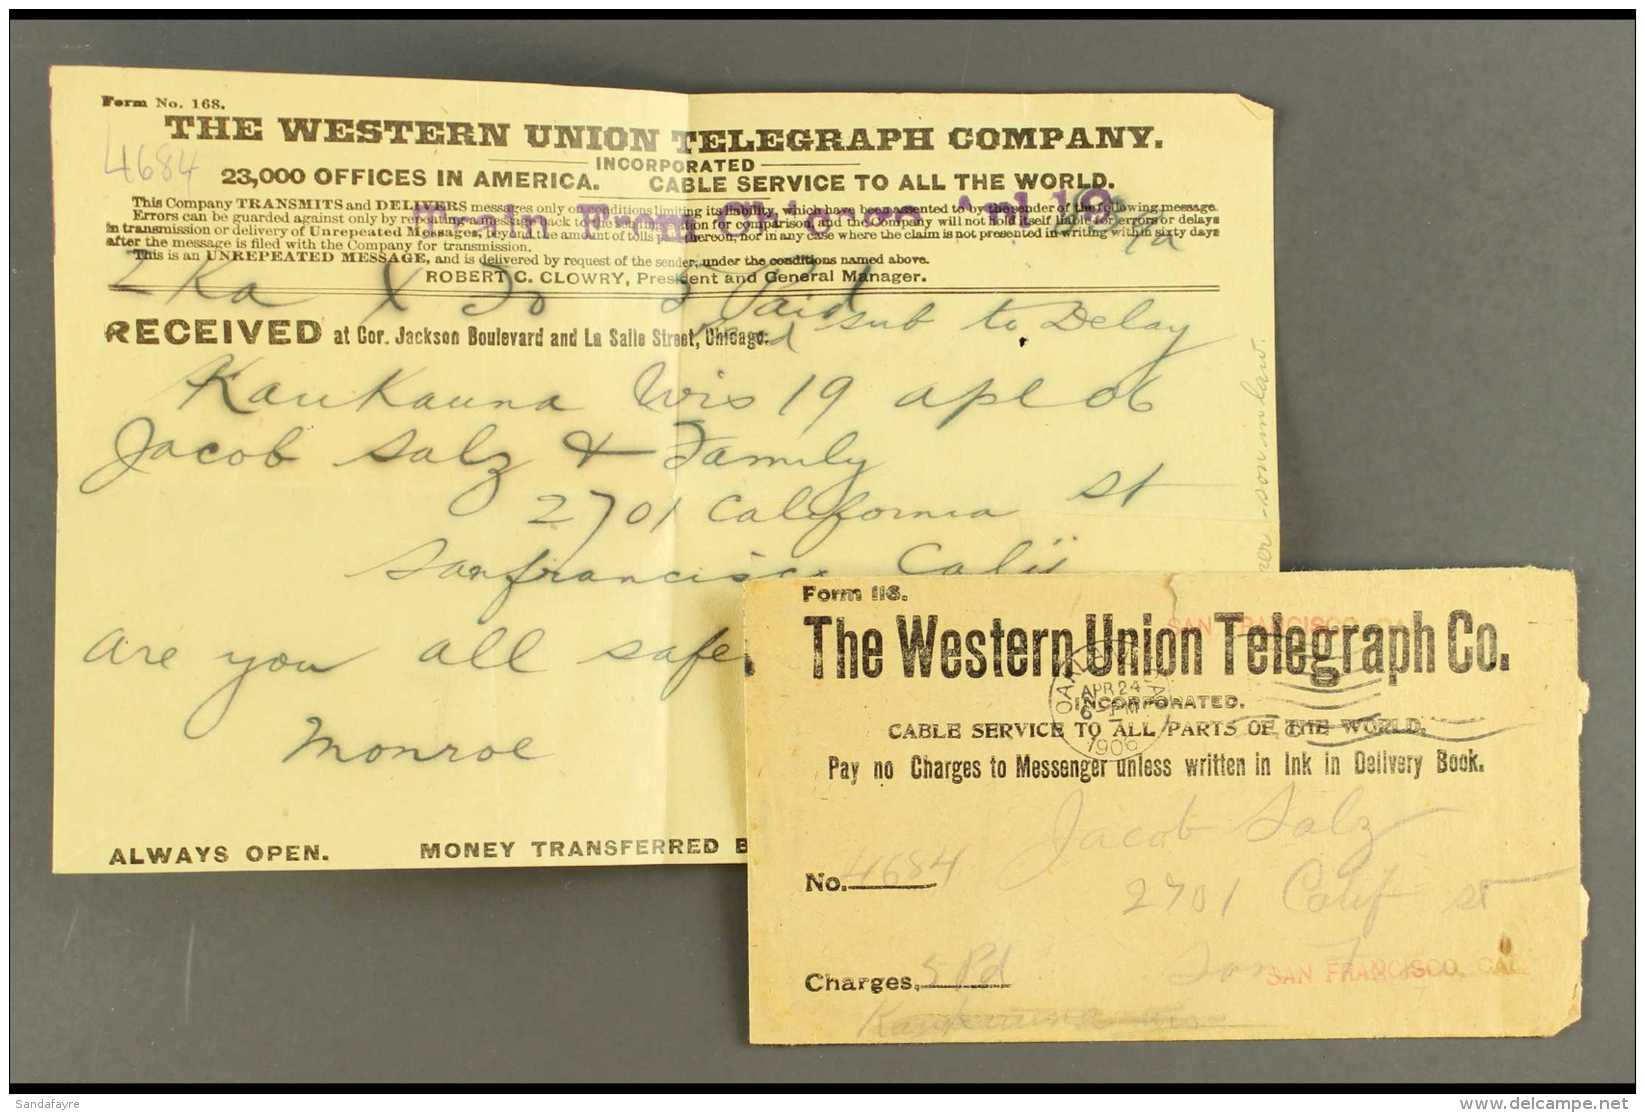 Form No. 168.
THE WESTERN UNION TELEGRAPH COMPANY.
INCORPORATED
4684
23,000 OFFICES IN AMERICA. CABLE SERVICE TO ALL THE WORLD.
This Company TRANSMITS and DELIVERS messages only on conditions limiting its liability, which have been assented to by the sender of the following message.
Errors can be guarded against only by repeating a message back to the sending station for comparison, and the Company will not hold itself liable for errors or delays
in transmission or delivery of Unrepeated Messages, beyond the amount of tolls paid thereon, nor in any case where the claim is not presented in writing within sixty days
after the message is filed with the Company for transmission.
This is an UNREPEATED MESSAGE, and is delivered by request of the sender, under the conditions named above.
ROBERT C. CLOWRY, President and General Manager.
Train From Chicago Apl 19
2 Ka X Do 5 Paid
sub to Delay
RECEIVED at Cor. Jackson Boulevard and La Salle Street, Chicago.
Kaukauna Wis 19 apl 06
Jacob Salz & Family
2701 California St
Sanfrancisco Calif
are you all safe
Monroe
son in law.
ALWAYS OPEN. MONEY TRANSFERRED B
Form 118.
SAN FRANCISCO, CA
The Western Union Telegraph Co.
INCORPORATED.
APR 24
6 PM
1906
CABLE SERVICE TO ALL PARTS OF THE WORLD.
Pay no Charges to Messenger unless written in Ink in Delivery Book.
Jacob Salz
No. 4684
2701 Calif st
San F
SAN FRANCISCO, CAL
Charges, 5 Pd
Kaukauna Wis
Sandafayre
www.delcampe.net